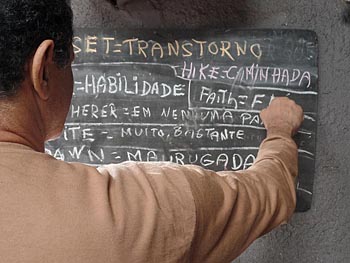 SET=TRANSTORNO
HIKE=CAMINHADA
=HABILIDADE
FAITH=F
HERER=EM NENHUMA PA
ITE = MUITO, BASTANTE...
AWN = MADRUGADA